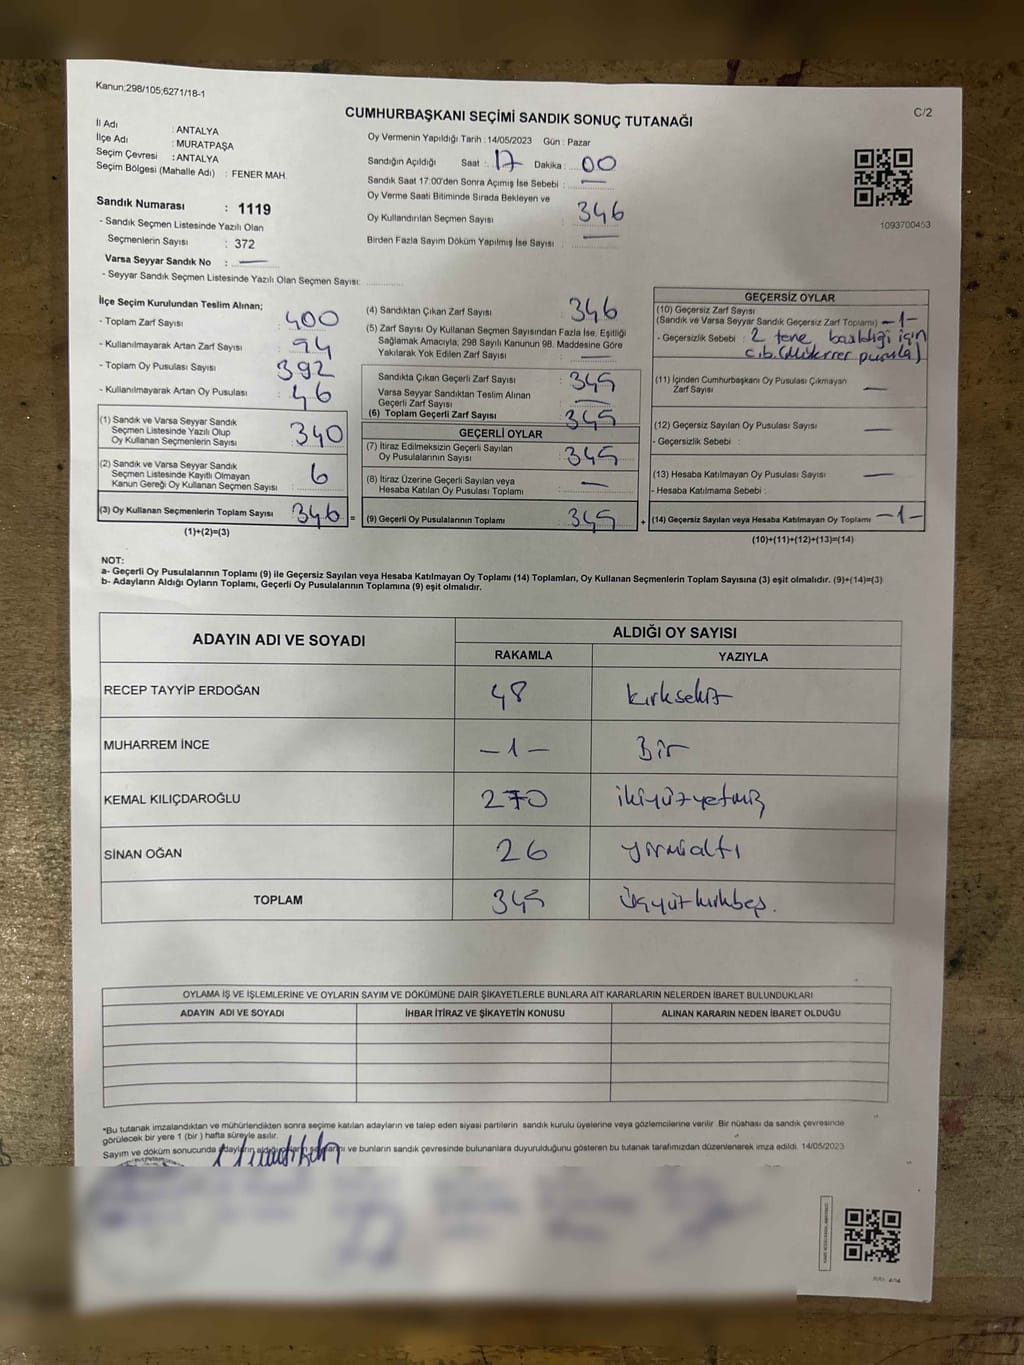 Kanun;298/105;6271/18-1
C/2
CUMHURBAŞKANI SEÇİMİ SANDIK SONUÇ TUTANAĞI
İl Adı : ANTALYA
İlçe Adı : MURATPAŞA
Seçim Çevresi : ANTALYA
Seçim Bölgesi (Mahalle Adı) : FENER MAH.
Sandık Numarası : 1119
- Sandık Seçmen Listesinde Yazılı Olan
Seçmenlerin Sayısı : 372
Varsa Seyyar Sandık No : —
- Seyyar Sandık Seçmen Listesinde Yazılı Olan Seçmen Sayısı:
Oy Vermenin Yapıldığı Tarih : 14/05/2023 Gün : Pazar
Sandığın Açıldığı Saat : 17 Dakika : 00
Sandık Saat 17:00'den Sonra Açımış İse Sebebi : —
Oy Verme Saati Bitiminde Sırada Bekleyen ve
Oy Kullandırılan Seçmen Sayısı 346
Birden Fazla Sayım Döküm Yapılmış İse Sayısı : —
1093700453
İlçe Seçim Kurulundan Teslim Alınan;
- Toplam Zarf Sayısı : 400
- Kullanılmayarak Artan Zarf Sayısı : 94
- Toplam Oy Pusulası Sayısı : 392
- Kullanılmayarak Artan Oy Pusulası : 46
(1) Sandık ve Varsa Seyyar Sandık
Seçmen Listesinde Yazılı Olup
Oy Kullanan Seçmenlerin Sayısı : 340
(2) Sandık ve Varsa Seyyar Sandık
Seçmen Listesinde Kayıtlı Olmayan
Kanun Gereği Oy Kullanan Seçmen Sayısı : 6
(3) Oy Kullanan Seçmenlerin Toplam Sayısı 346 =
(1)+(2)=(3)
(4) Sandıktan Çıkan Zarf Sayısı : 346
(5) Zarf Sayısı Oy Kullanan Seçmen Sayısından Fazla İse, Eşitliği
Sağlamak Amacıyla; 298 Sayılı Kanunun 98. Maddesine Göre
Yakılarak Yok Edilen Zarf Sayısı : —
Sandıkta Çıkan Geçerli Zarf Sayısı : 345
Varsa Seyyar Sandıktan Teslim Alınan
Geçerli Zarf Sayısı : —
(6) Toplam Geçerli Zarf Sayısı : 345
GEÇERLİ OYLAR
(7) İtiraz Edilmeksizin Geçerli Sayılan
Oy Pusulalarının Sayısı : 345
(8) İtiraz Üzerine Geçerli Sayılan veya
Hesaba Katılan Oy Pusulası Toplamı : —
(9) Geçerli Oy Pusulalarının Toplamı : 345 +
GEÇERSİZ OYLAR
(10) Geçersiz Zarf Sayısı
(Sandık ve Varsa Seyyar Sandık Geçersiz Zarf Toplamı) —1—
- Geçersizlik Sebebi : 2 tane basıldığı için
c.b. (Mükerrer pusula)
(11) İçinden Cumhurbaşkanı Oy Pusulası Çıkmayan
Zarf Sayısı —
(12) Geçersiz Sayılan Oy Pusulası Sayısı —
- Geçersizlik Sebebi :
(13) Hesaba Katılmayan Oy Pusulası Sayısı —
- Hesaba Katılmama Sebebi :
(14) Geçersiz Sayılan veya Hesaba Katılmayan Oy Toplamı —1—
(10)+(11)+(12)+(13)=(14)
NOT:
a- Geçerli Oy Pusulalarının Toplamı (9) ile Geçersiz Sayılan veya Hesaba Katılmayan Oy Toplamı (14) Toplamları, Oy Kullanan Seçmenlerin Toplam Sayısına (3) eşit olmalıdır. (9)+(14)=(3)
b- Adayların Aldığı Oyların Toplamı, Geçerli Oy Pusulalarının Toplamına (9) eşit olmalıdır.
ADAYIN ADI VE SOYADI
ALDIĞI OY SAYISI
RAKAMLA YAZIYLA
RECEP TAYYİP ERDOĞAN 48 kırksekiz
MUHARREM İNCE —1— Bir
KEMAL KILIÇDAROĞLU 270 ikiyüzyetmiş
SİNAN OĞAN 26 yirmialtı
TOPLAM 345 üçyüzkırkbeş.
OYLAMA İŞ VE İŞLEMLERİNE VE OYLARIN SAYIM VE DÖKÜMÜNE DAİR ŞİKAYETLERLE BUNLARA AİT KARARLARIN NELERDEN İBARET BULUNDUKLARI
ADAYIN ADI VE SOYADI İHBAR İTİRAZ VE ŞİKAYETİN KONUSU ALINAN KARARIN NEDEN İBARET OLDUĞU
*Bu tutanak imzalandıktan ve mühürlendikten sonra seçime katılan adayların ve talep eden siyasi partilerin sandık kurulu üyelerine veya gözlemcilerine verilir. Bir nüshası da sandık çevresinde
görülecek bir yere 1 (bir ) hafta süreyle asılır.
Sayım ve döküm sonucunda adayların aldığı ve bunların sandık çevresinde bulunanlara duyurulduğunu gösteren bu tutanak tarafımızdan düzenlenerek imza edildi. 14/05/2023